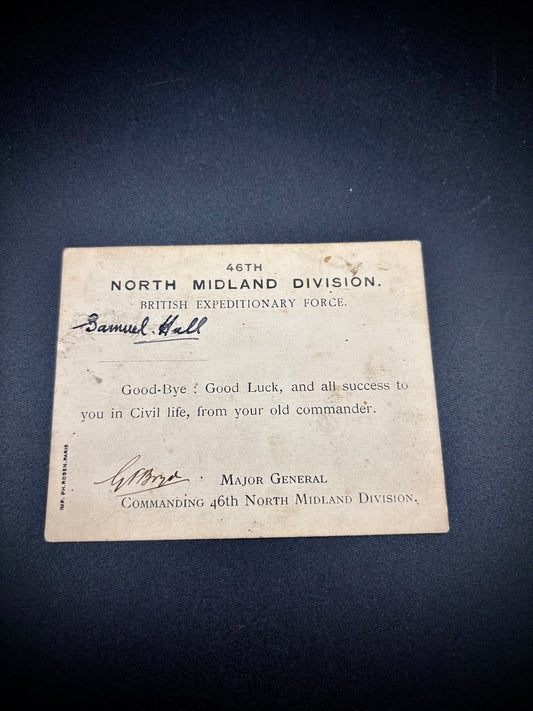 46TH
NORTH MIDLAND DIVISION.
BRITISH EXPEDITIONARY FORCE.
Samuel Hall
Good-Bye ; Good Luck, and all success to
you in Civil life, from your old commander.
G F Boyd
MAJOR GENERAL
COMMANDING 46TH NORTH MIDLAND DIVISION.
IMP. PH. ROSEN. PARIS